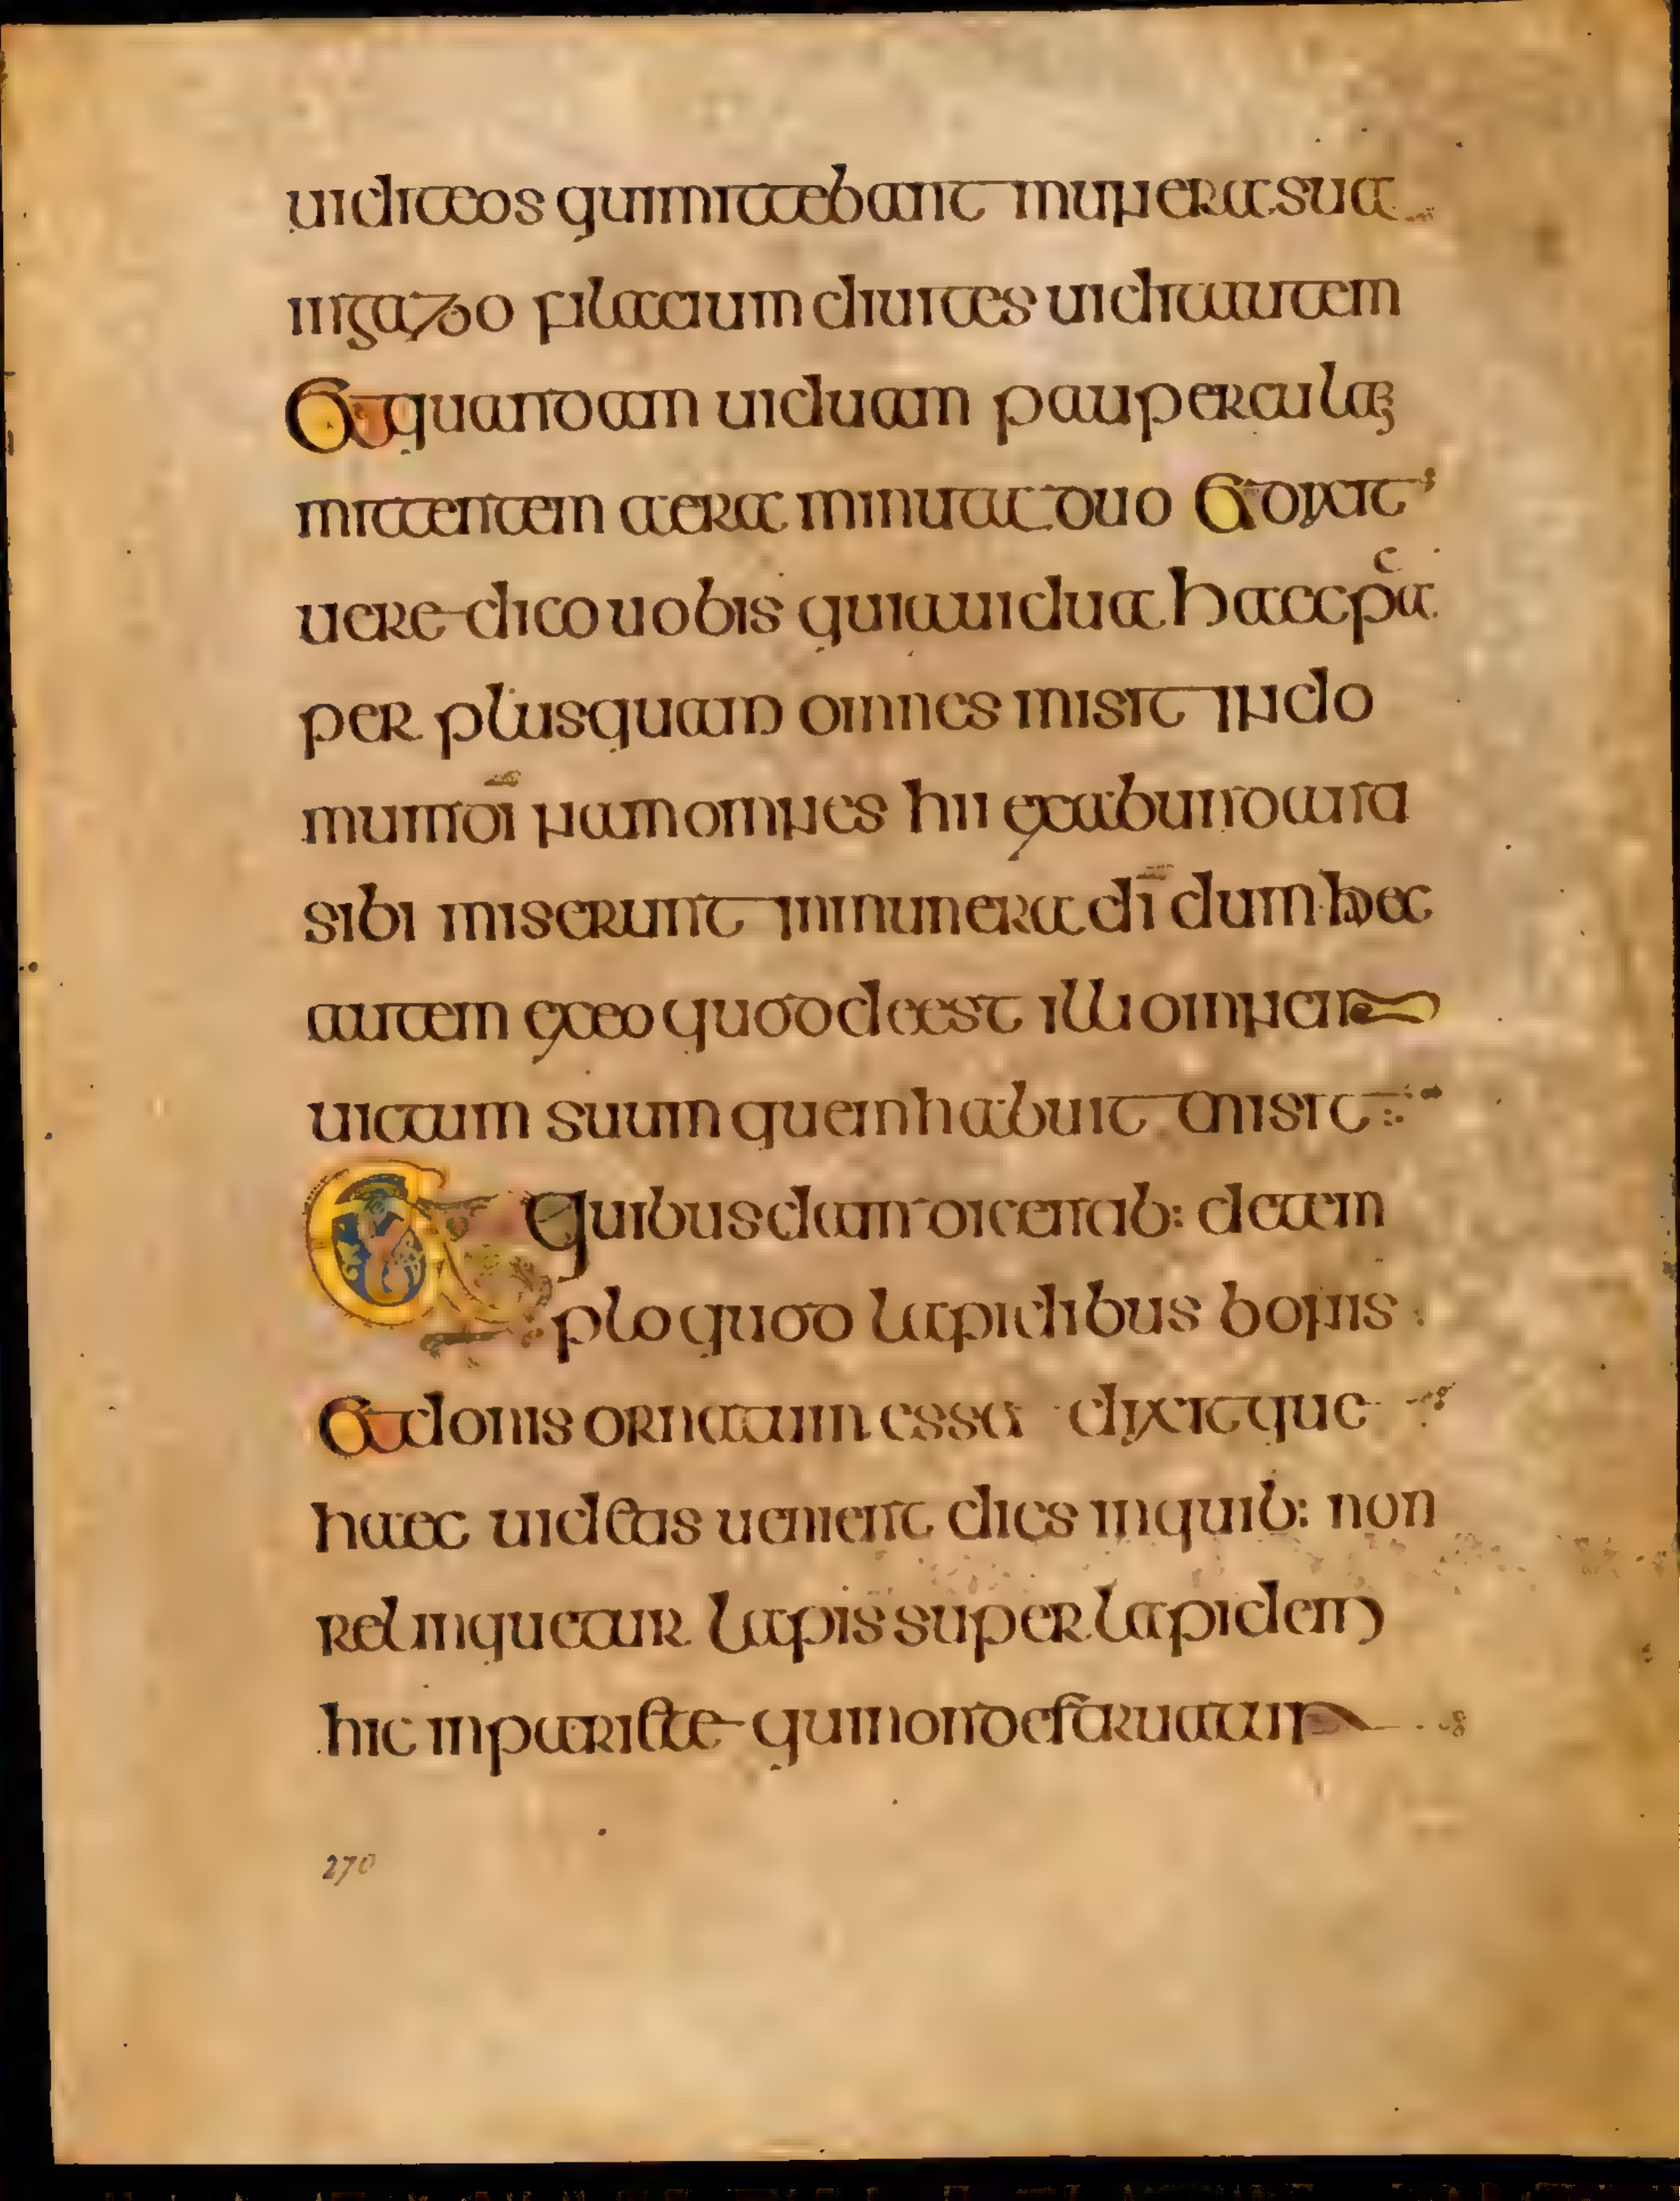 uidit eos qui mittebant munera sua
in gazo filacium diuites uidit autem
Et quandam uiduam pauperculam
mittentem aera minuta duo Et dixit
uere dico uobis quia uidua haec pa
c
per plus quam omnes misit in do
mum di nam omnes hii ex abundanta
sibi miserunt in munera di dum haec
autem ex eo quod deest illi omnem
uictum suum quem habuit misit
Et quibusdam dicentib: de tem
plo quod lapidibus bonis
Et donis ornatum esset dixitque
haec uidetis uenient dies in quib: non
relinquetur lapis super lapidem
hic in pariete qui non destruatur
270